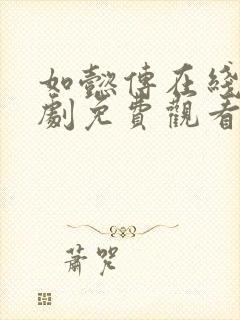 如懿傳在綫
劇免費觀看
蕭咒